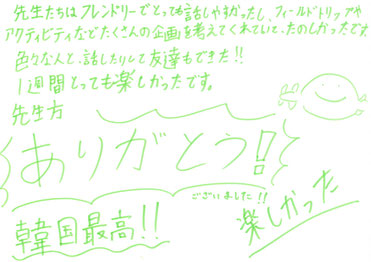 先生たちはフレンドリーでとっても話しやすかったし、フィールドトリップや
アクティビティなどたくさんの企画を考えてくれていて、たのしかったです。
色々なんと、話したりして友達もできた!!
1週間とっても楽しかったです。
先生方
ありがとう!
ございました!!
韓国最高!!
楽しかった